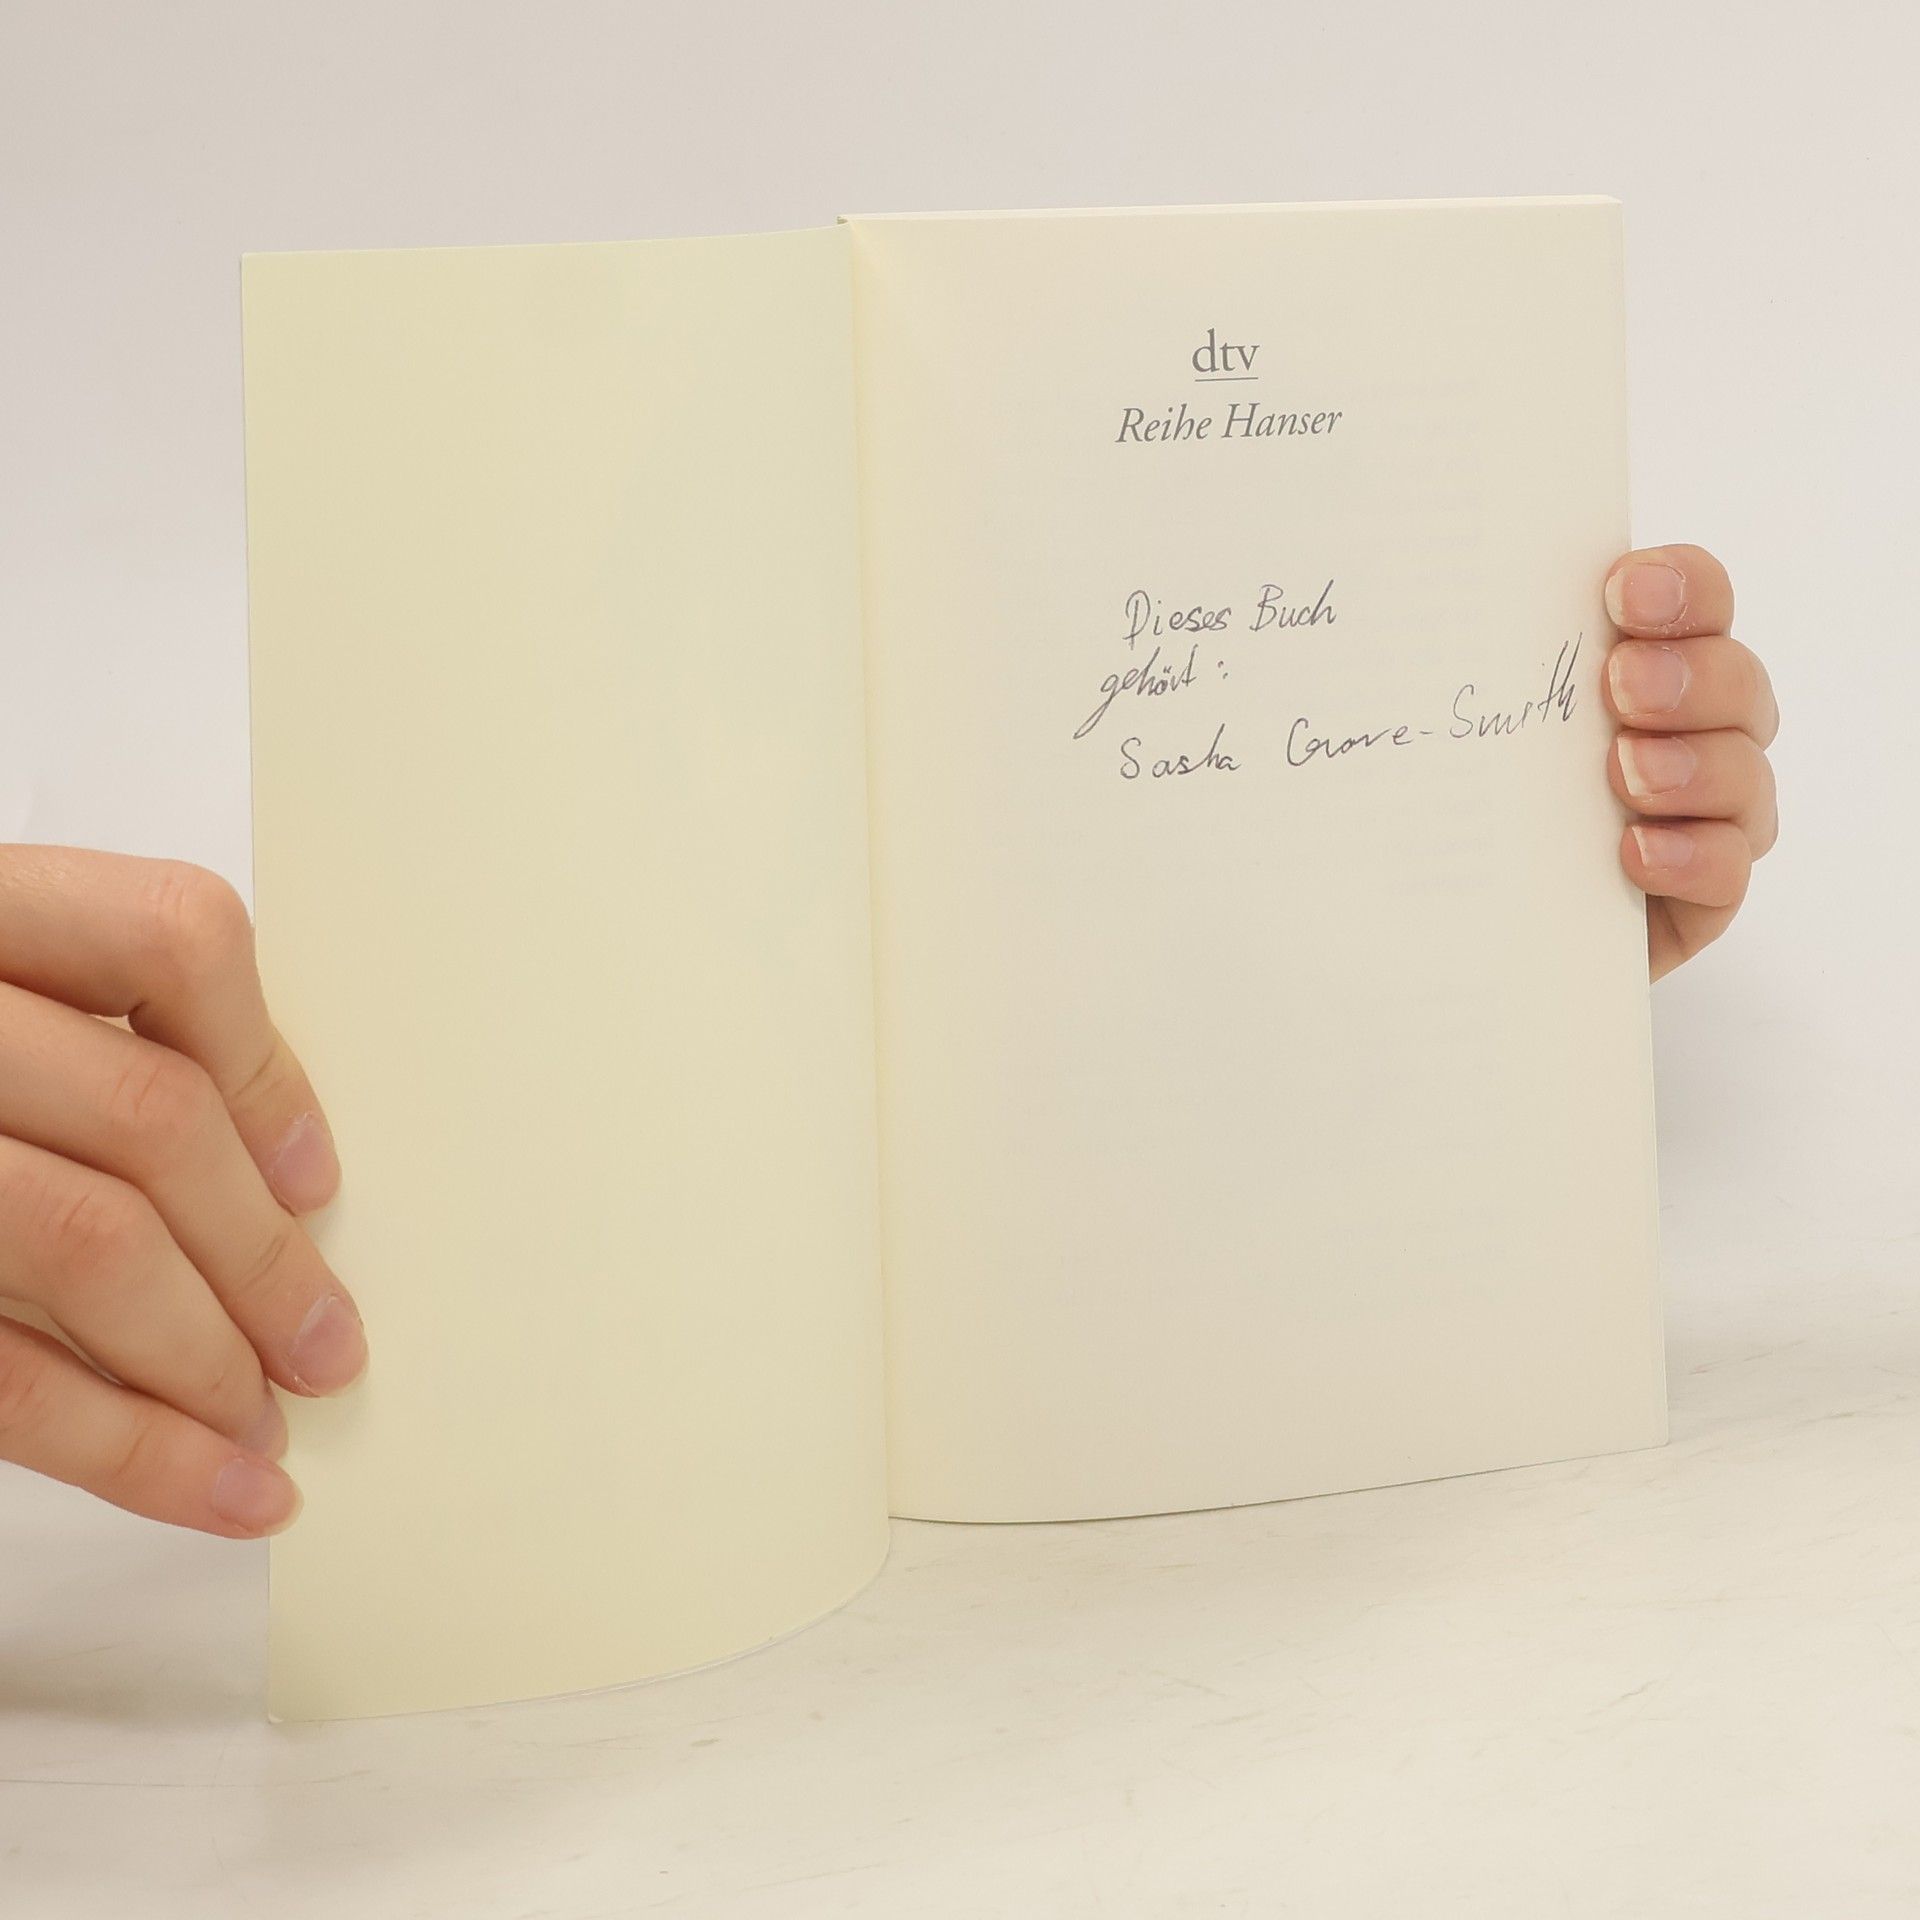 dtv
Reihe Hanser
Dieses Buch
gehört :
Sasha Grove-Smith